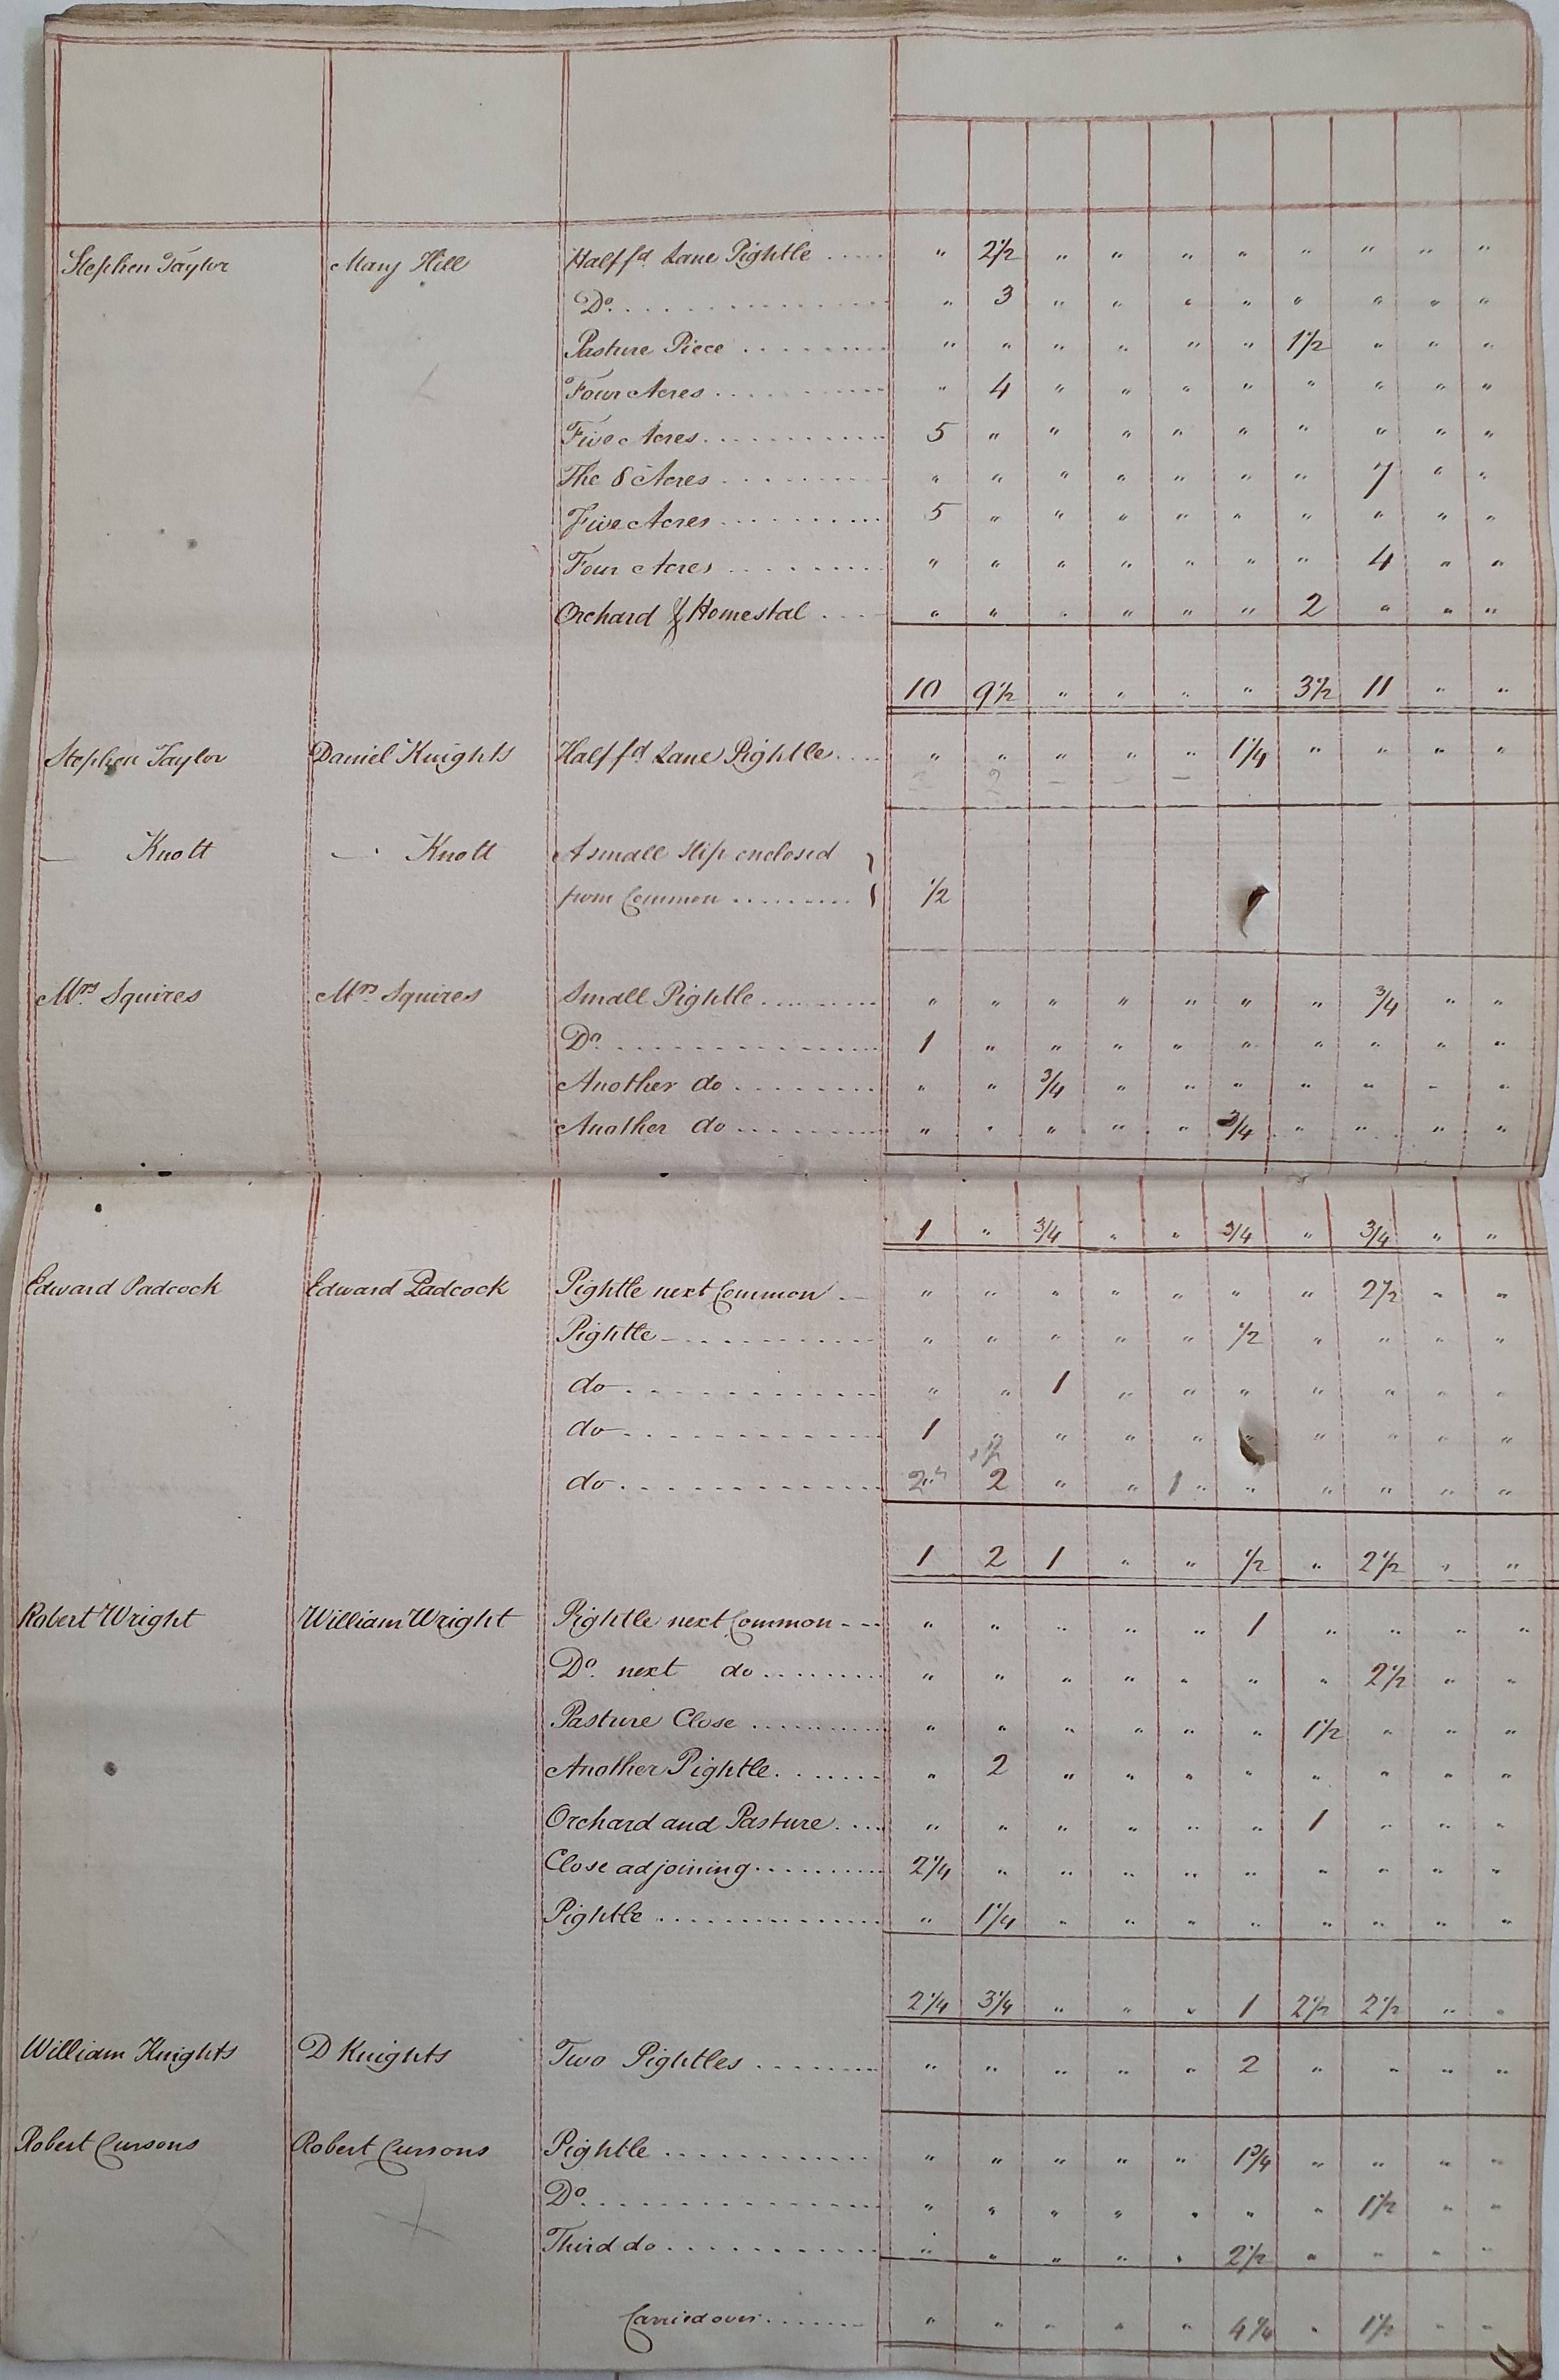 Stephen Taylor Mary Hill Half fd Lane Pightle ..... " 2½ " " " " " " " "
Do. .............. " 3 " " " " " " " "
Pasture Piece ......... " " " " " " 1½ " " "
Four Acres .......... " 4 " " " " " " " "
Five Acres ........... 5 " " " " " " " " "
The 8 Acres .......... " " " " " " " 7 " "
Five Acres .......... 5 " " " " " " " " "
Four Acres ......... " " " " " " " 4 " "
Orchard & Homestal .... " " " " " " 2 " " "
10 9½ " " " " 3½ 11 " "
Stephen Taylor Daniel Knights Half fd Lane Pightle .... " " " " " 1¼ " " " "
2 – – –
— Knott — Knott A small slip enclosed
from Common ......... ½
Mrs Squires Mrs Squires Small Pightle ......... " " " " " " " ¾ " "
Do ............... 1 " " " " " " " " "
Another do ......... " " ¾ " " " " " " "
Another do .......... " " " " " ¾ " " " "
1 " ¾ " " ¾ " ¾ " "
Edward Padcock Edward Padcock Pightle next Common .. " " " " " " " 2½ " "
Pightle ........... " " " " " ½ " " " "
do ............. " " 1 " " " " " " "
do ............. 1 " " " " " " " "
do ............. 2 " 2 " " 1 " " " " " "
1 2 1 " " ½ " 2½ " "
Robert Wright William Wright Pightle next Common --- " " " " " 1 " " " "
Do. next do ......... " " " " " " " 2½ " "
Pasture Close ........... " " " " " " 1½ " " "
Another Pightle ....... " 2 " " " " " " " "
Orchard and Pasture .... " " " " " " 1 " " "
Close adjoining .......... 2¼ " " " " " " " " "
Pightle .............. " 1¼ " " " " " " " "
2¼ 3¼ " " " 1 2½ 2½ " "
William Knights D Knights Two Pightles ........ " " " " " 2 " " " "
Robert Cursons Robert Cursons Pightle ........... " " " " " 1¾ " " " "
Do. .............. " " " " " " " 1½ " "
Third do ............ " " " " " 2½ " " " "
Carried over ....... " " " " " 4¼ " 1½ " "